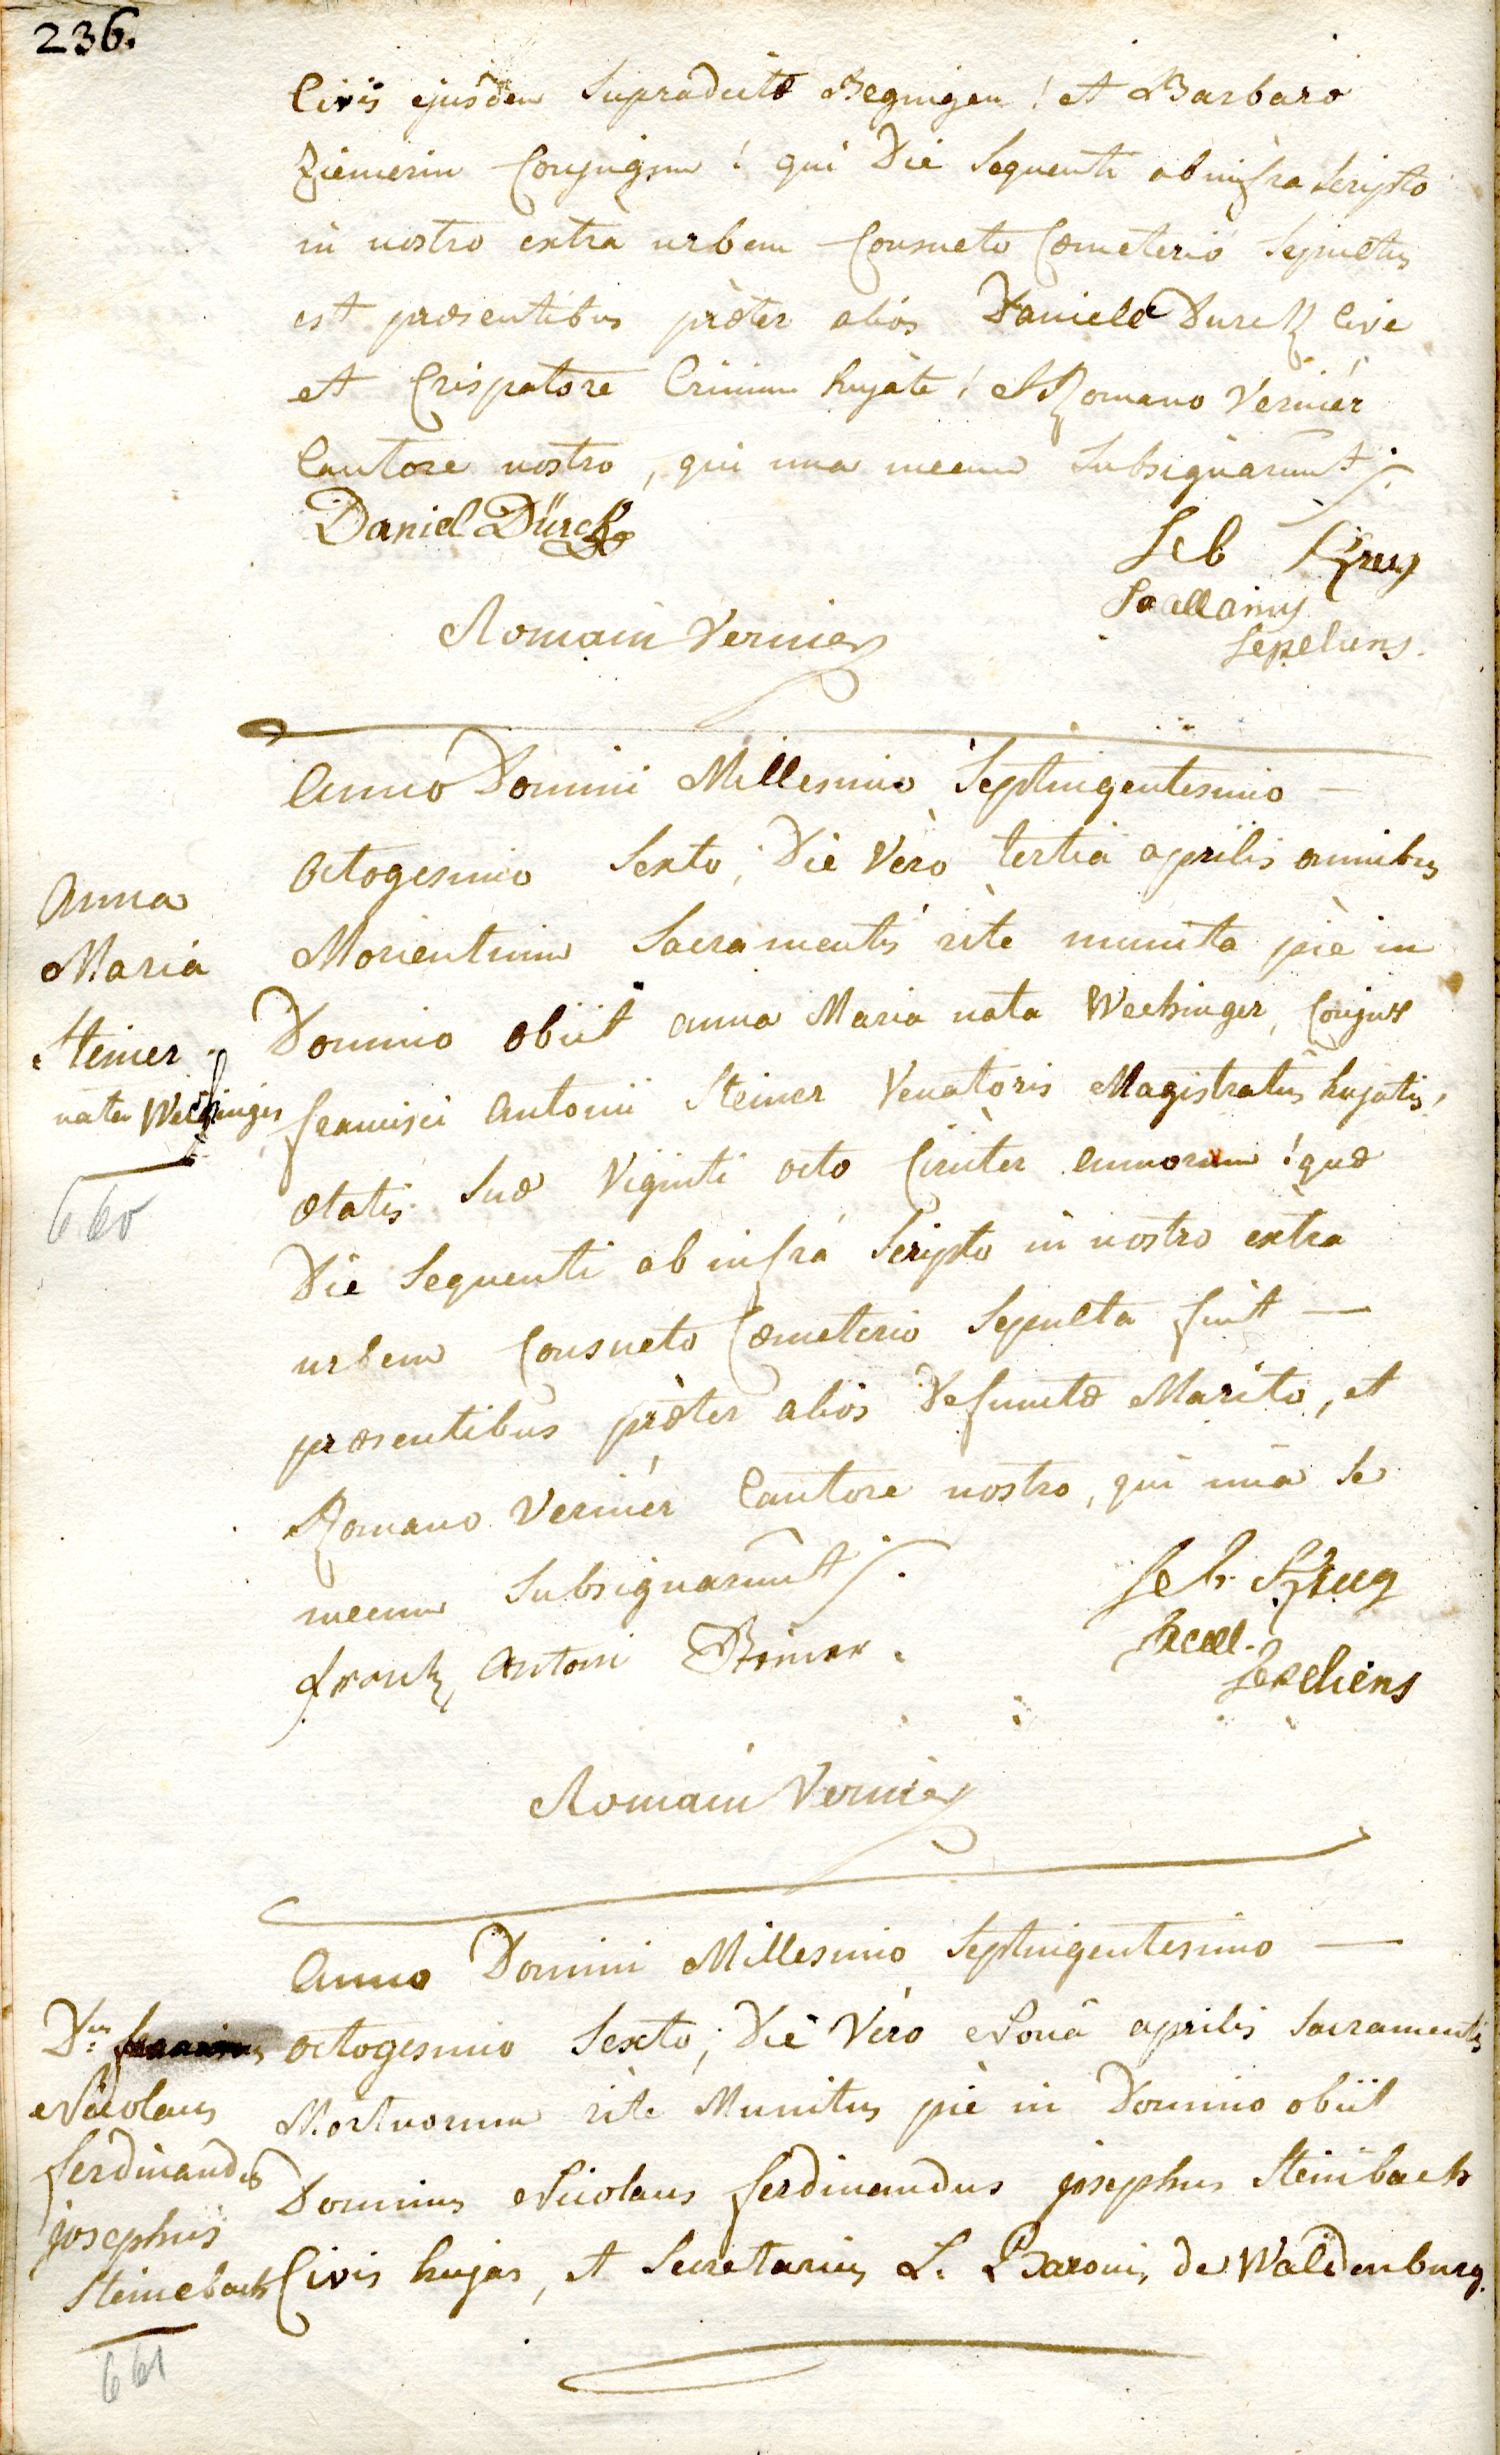 236.
Civis ejusdem supradictæ Begnigen! et Barbaræ
Ziemerin Conjugum! qui Die sequenti ab infra scripto
in nostro extra urbem Consueto Cœmeterio sepultus
est præsentibus præter alios Daniele Durck Cive
et Crispatore Crinium hujate! et Romano Vernier
Cantore nostro, qui una mecum subsignarunt.
Daniel Dürck
Seb Krug
Sacellanus
sepeliens.
Romain Vernier
Anno Domini Millesimo Septingentesimo —
octogesimo sexto, Die Vero tertia aprilis omnibus
Morientium Sacramentis rite munita piè in
Domino obiit anna Maria nata Wechinger, Conjux
francisci Antonii Steiner Venatoris Magistratus hujatis,
ætatis suæ Viginti octo Circiter annorum! quæ
Die sequenti ab infrà scripto in nostro extra
urbem Consueto Cœmeterio Sepulta fuit —
præsentibus præter alios Defunctæ Marito, et
Romano Vernièr Cantore nostro, qui unà se
mecum subsignarunt.
frantz Antoni Steiner.
Seb. Krug
Sacell.
Sepeliens
Romain Vernier
Anna
Maria
Steiner
nata Wechinger
660
Anno Domini Millesimo Septingentesimo —
octogesimo Sexto, Die Vero Nonâ aprilis Sacramentis
Mortuorum rite Munitus piè in Domino obiit
Dominus Nicolaus ferdinandus josephus Steinbach
Civis hujas, et Secretarius L. Baronis de Waldenburg.
Dnus
Nicolaus
ferdinandus
josephus
Steinebach
661